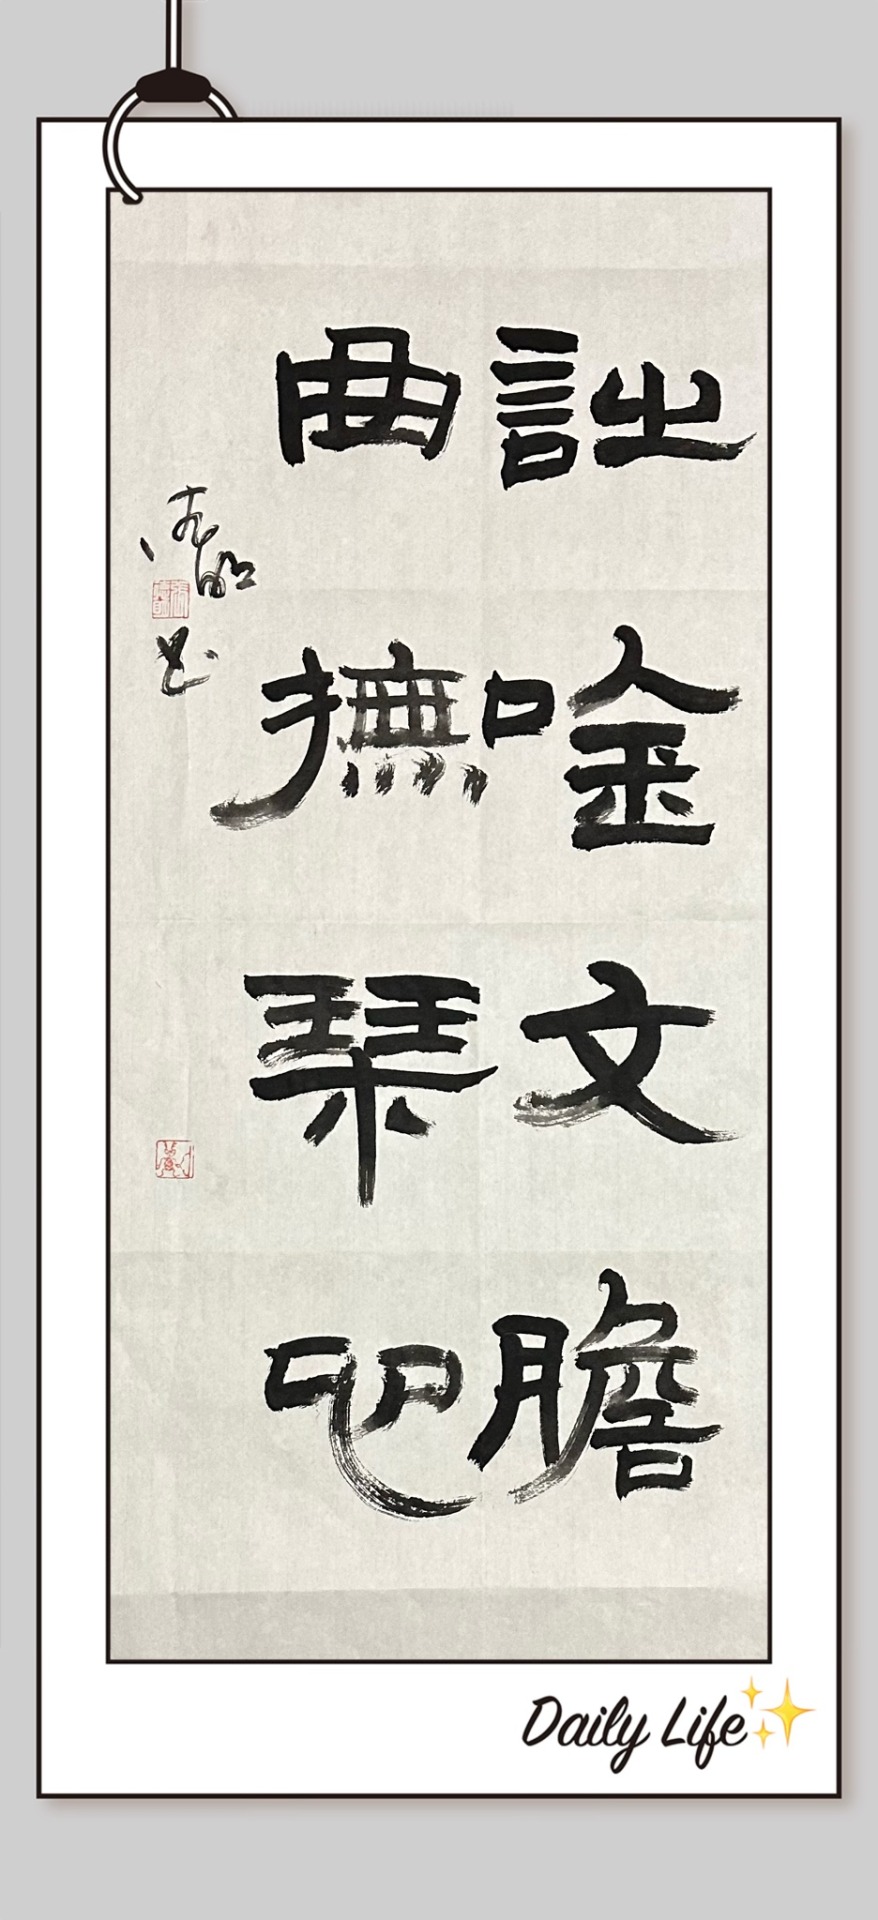 詩唫文膽
曲撫琴心
书
Daily Life